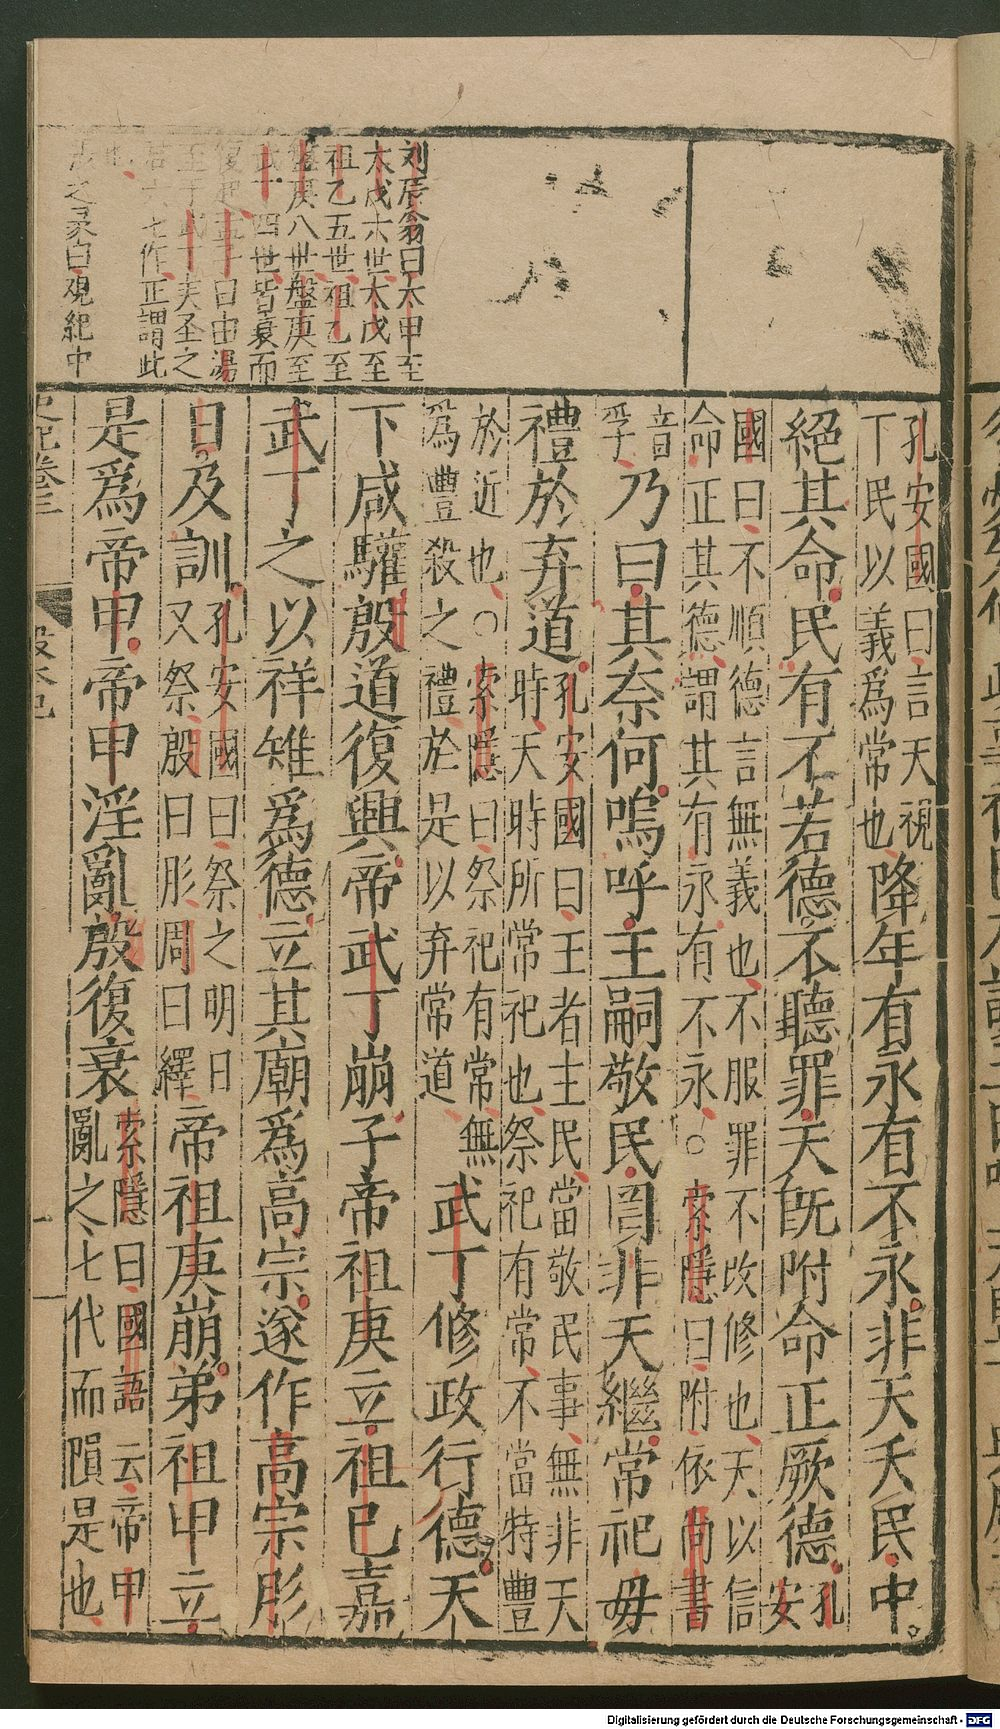 刘辰翁曰太甲至
太戊六世太戊至
祖乙五世祖乙至
盤庚八世盤庚至
武丁四世皆衰而
復起孟子曰由湯
至于武丁賢圣之
君六七作正謂此
也
古之彖白觀紀中
孔安國曰言天視
下民以義爲常也
降年有永有不永非天夭民中
絕其命民有不若德不聽罪天既附命正厥德
孔
安
國曰不順德言無義也不服罪不改修也天以信
命正其德謂其有永有不永○索隱曰附依尚書
音
孚
乃曰其奈何嗚呼王嗣敬民罔非天繼常祀毋
禮於弃道
孔安國曰王者主民當敬民事無非天
時天時所常祀也祭祀有常不當特豐
於近也○索隱曰祭祀有常無
爲豐殺之禮於是以弃常道
武丁修政行德天
下咸驩殷道復興帝武丁崩子帝祖庚立祖已嘉
武丁之以祥雉爲德立其廟爲高宗遂作高宗肜
日及訓
孔安國曰祭之明日
又祭殷曰肜周曰繹
帝祖庚崩弟祖甲立
是爲帝甲帝甲淫亂殷復衰
索隱曰國語云帝甲
亂之七代而隕是也
史記卷三
殷本紀
Digitalisierung gefördert durch die Deutsche Forschungsgemeinschaft - DFG